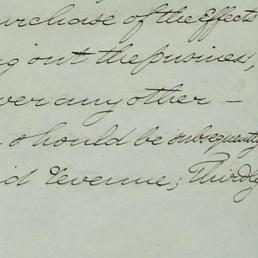 urchase of the Effects
g out the business,
ver any other -
should be subsequently
id Revenue; Thirdly